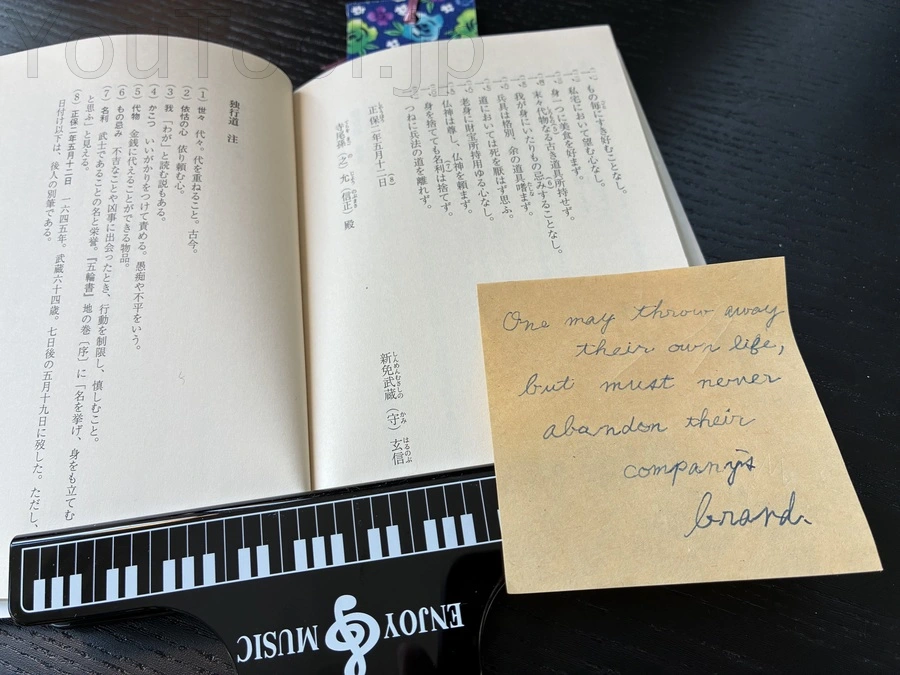 YouTool.jp
一、もの毎にすき好むことなし。
一、私宅において望む心なし。
一、身一つに美食を好まず。
一、末々代物なる古き道具所持せず。
一、我が身にいたりもの忌みすることなし。(6)
一、兵具は格別、余の道具嗜まず。
一、道においては死を厭はず思ふ。
一、老身に財宝所持用ゆる心なし。
一、仏神は尊し、仏神を頼まず。
一、身を捨てても名利は捨てず。(7)
一、つねに兵法の道を離れず。
正保二年五月十二日(8)
新免武蔵(守)玄信
孫(之)允(信正)殿
独行道 注
(1) 世々 代々。代を重ねること。古今。
(2) 依怙の心 依り頼む心。
(3) 我 「わが」と読む説もある。
(4) かこつ いいがかりをつけて責める。愚痴や不平をいう。
(5) 代物 金銭に代えることができる物品。
(6) もの忌み 不吉なことや凶事に出会ったとき、行動を制限し、慎しむこと。
(7) 名利 武士であることの名と栄誉。『五輪書』地の巻〔序〕に「名を挙げ、身をも立てむ
と思ふ」と見える。
(8) 正保二年五月十二日 一六四五年。武蔵六十四歳。七日後の五月十九日に歿した。ただし、
日付け以下は、後人の別筆である。
One may throw away
their own life,
but must never
abandon their
company's
brand.
ENJOY MUSIC